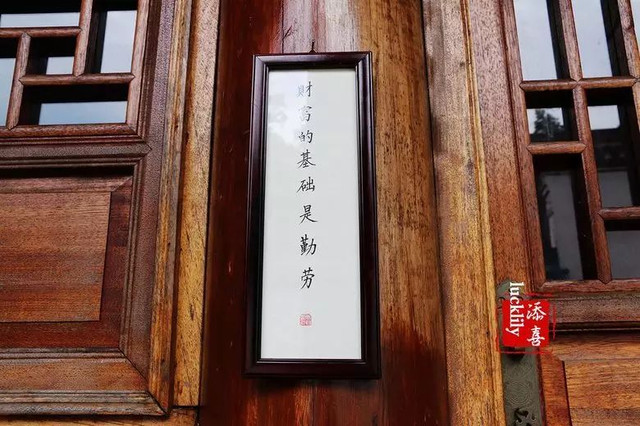 财富的基础是勤劳
lucklily
添喜